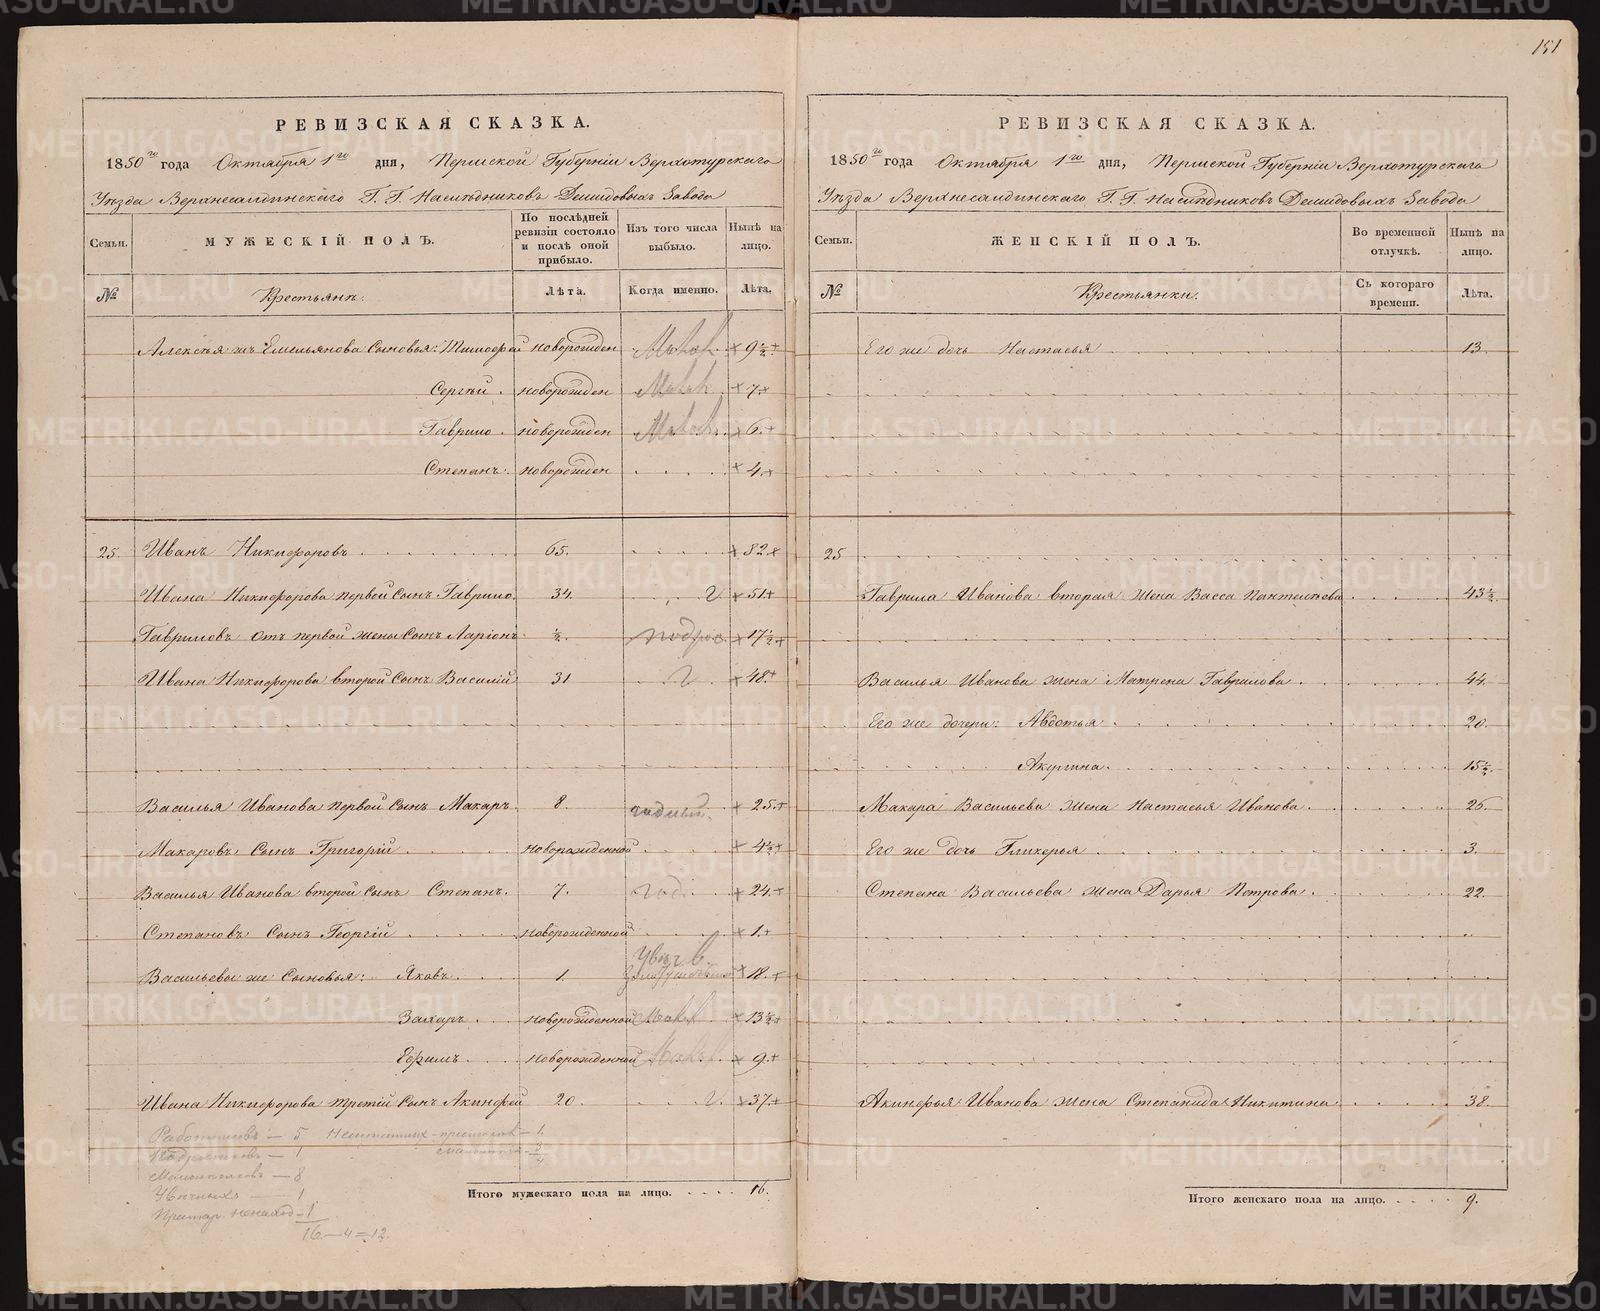 151
РЕВИЗСКАЯ СКАЗКА.
1850го года Октября 1го дня, Пермской Губернiи Верхотурскаго
Уѣзда Верхнесалдинскаго Г. Г. Наслѣдниковъ Демидовыхъ Завода
Семьи.
МУЖЕСКIЙ ПОЛЪ.
По послѣдней ревизiи состояло и послѣ оной прибыло.
Изъ того числа выбыло.
Нынѣ на лицо.
№
Крестьянъ.
Лѣта.
Когда именно.
Лѣта.
Алексѣя жъ Емельянова сыновья: Тимофей новорожден 9½
Сергѣй. новорожден 7
Гаврило. новорожден 6
Степанъ. новорожден 4
25. Иванъ Никифоровъ 65. 82
Ивана Никифорова первой сынъ Гаврило. 34. 51
Гавриловъ отъ первой жены сынъ Ларiонъ ½. подрос. 17½
Ивана Никифорова второй сынъ Василiй 31 48
Василья Иванова первой сынъ Макаръ. 8. годный. 25
Макаровъ сынъ Григорiй новорожденной 4½
Василья Иванова второй сынъ Степанъ. 7. год. 24
Степановъ сынъ Георгiй новорожденной 1
Васильевы же сыновья: Яковъ. 1. 18
Захаръ. новорожденной 13½
Ефимъ. новорожденной 9
Ивана Никифорова третiй сынъ Акинфей 20. 37
Работниковъ — 5
Подростковъ — 1
Малолѣтковъ — 8
Увѣчныхъ — 1
Престар. — 1
16 — 4 = 12
Итого мужескаго пола на лицо. 16.
РЕВИЗСКАЯ СКАЗКА.
1850го года Октября 1го дня, Пермской Губернiи Верхотурскаго
Уѣзда Верхнесалдинскаго Г. Г. Наслѣдниковъ Демидовыхъ Завода
Семьи.
ЖЕНСКIЙ ПОЛЪ.
Во временной отлучкѣ.
Нынѣ на лицо.
№
Крестьянки.
Съ котораго времени.
Лѣта.
Его же дочь Настасья 13.
25
Гаврила Иванова вторая жена Васса Пантелѣева 43½
Василья Иванова жена Матрена Гаврилова 44.
Его же дочери: Авдотья 20.
Акулина. 15½
Макара Васильева жена Настасья Иванова. 26.
Его же дочь Гликерья 3.
Степана Васильева жена Дарья Петрова. 22.
Акинфья Иванова жена Степанида Никитина 38.
Итого женскаго пола на лицо. 9.
METRIKI.GASO-URAL.RU